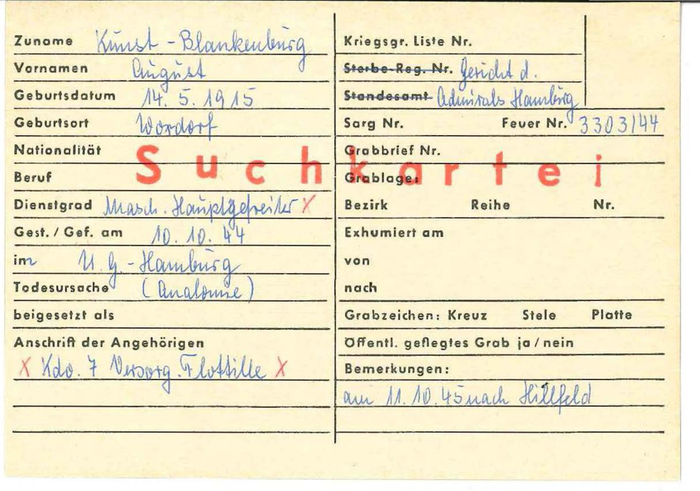 Zuname Kunst - Blankenburg
Vornamen August
Geburtsdatum 14. 5. 1915
Geburtsort Wordorf
Nationalität
Beruf
Suchkartei
Dienstgrad Masch. Hauptgefreiter X
Gest. / Gef. am 10. 10. 44
im U. G. - Hamburg
Todesursache (Anatomie)
beigesetzt als
Anschrift der Angehörigen
X Kdo. 7 Versorg. Flottille X
Kriegsgr. Liste Nr.
Sterbe-Reg. Nr. Gericht d.
Standesamt Admirals Hamburg
Sarg Nr. Feuer Nr. 3303/44
Grabbrief Nr.
Grablage:
Bezirk Reihe Nr.
Exhumiert am
von
nach
Grabzeichen: Kreuz Stele Platte
Öffentl. gepflegtes Grab ja / nein
Bemerkungen:
am 11. 10. 45 nach Hillfeld